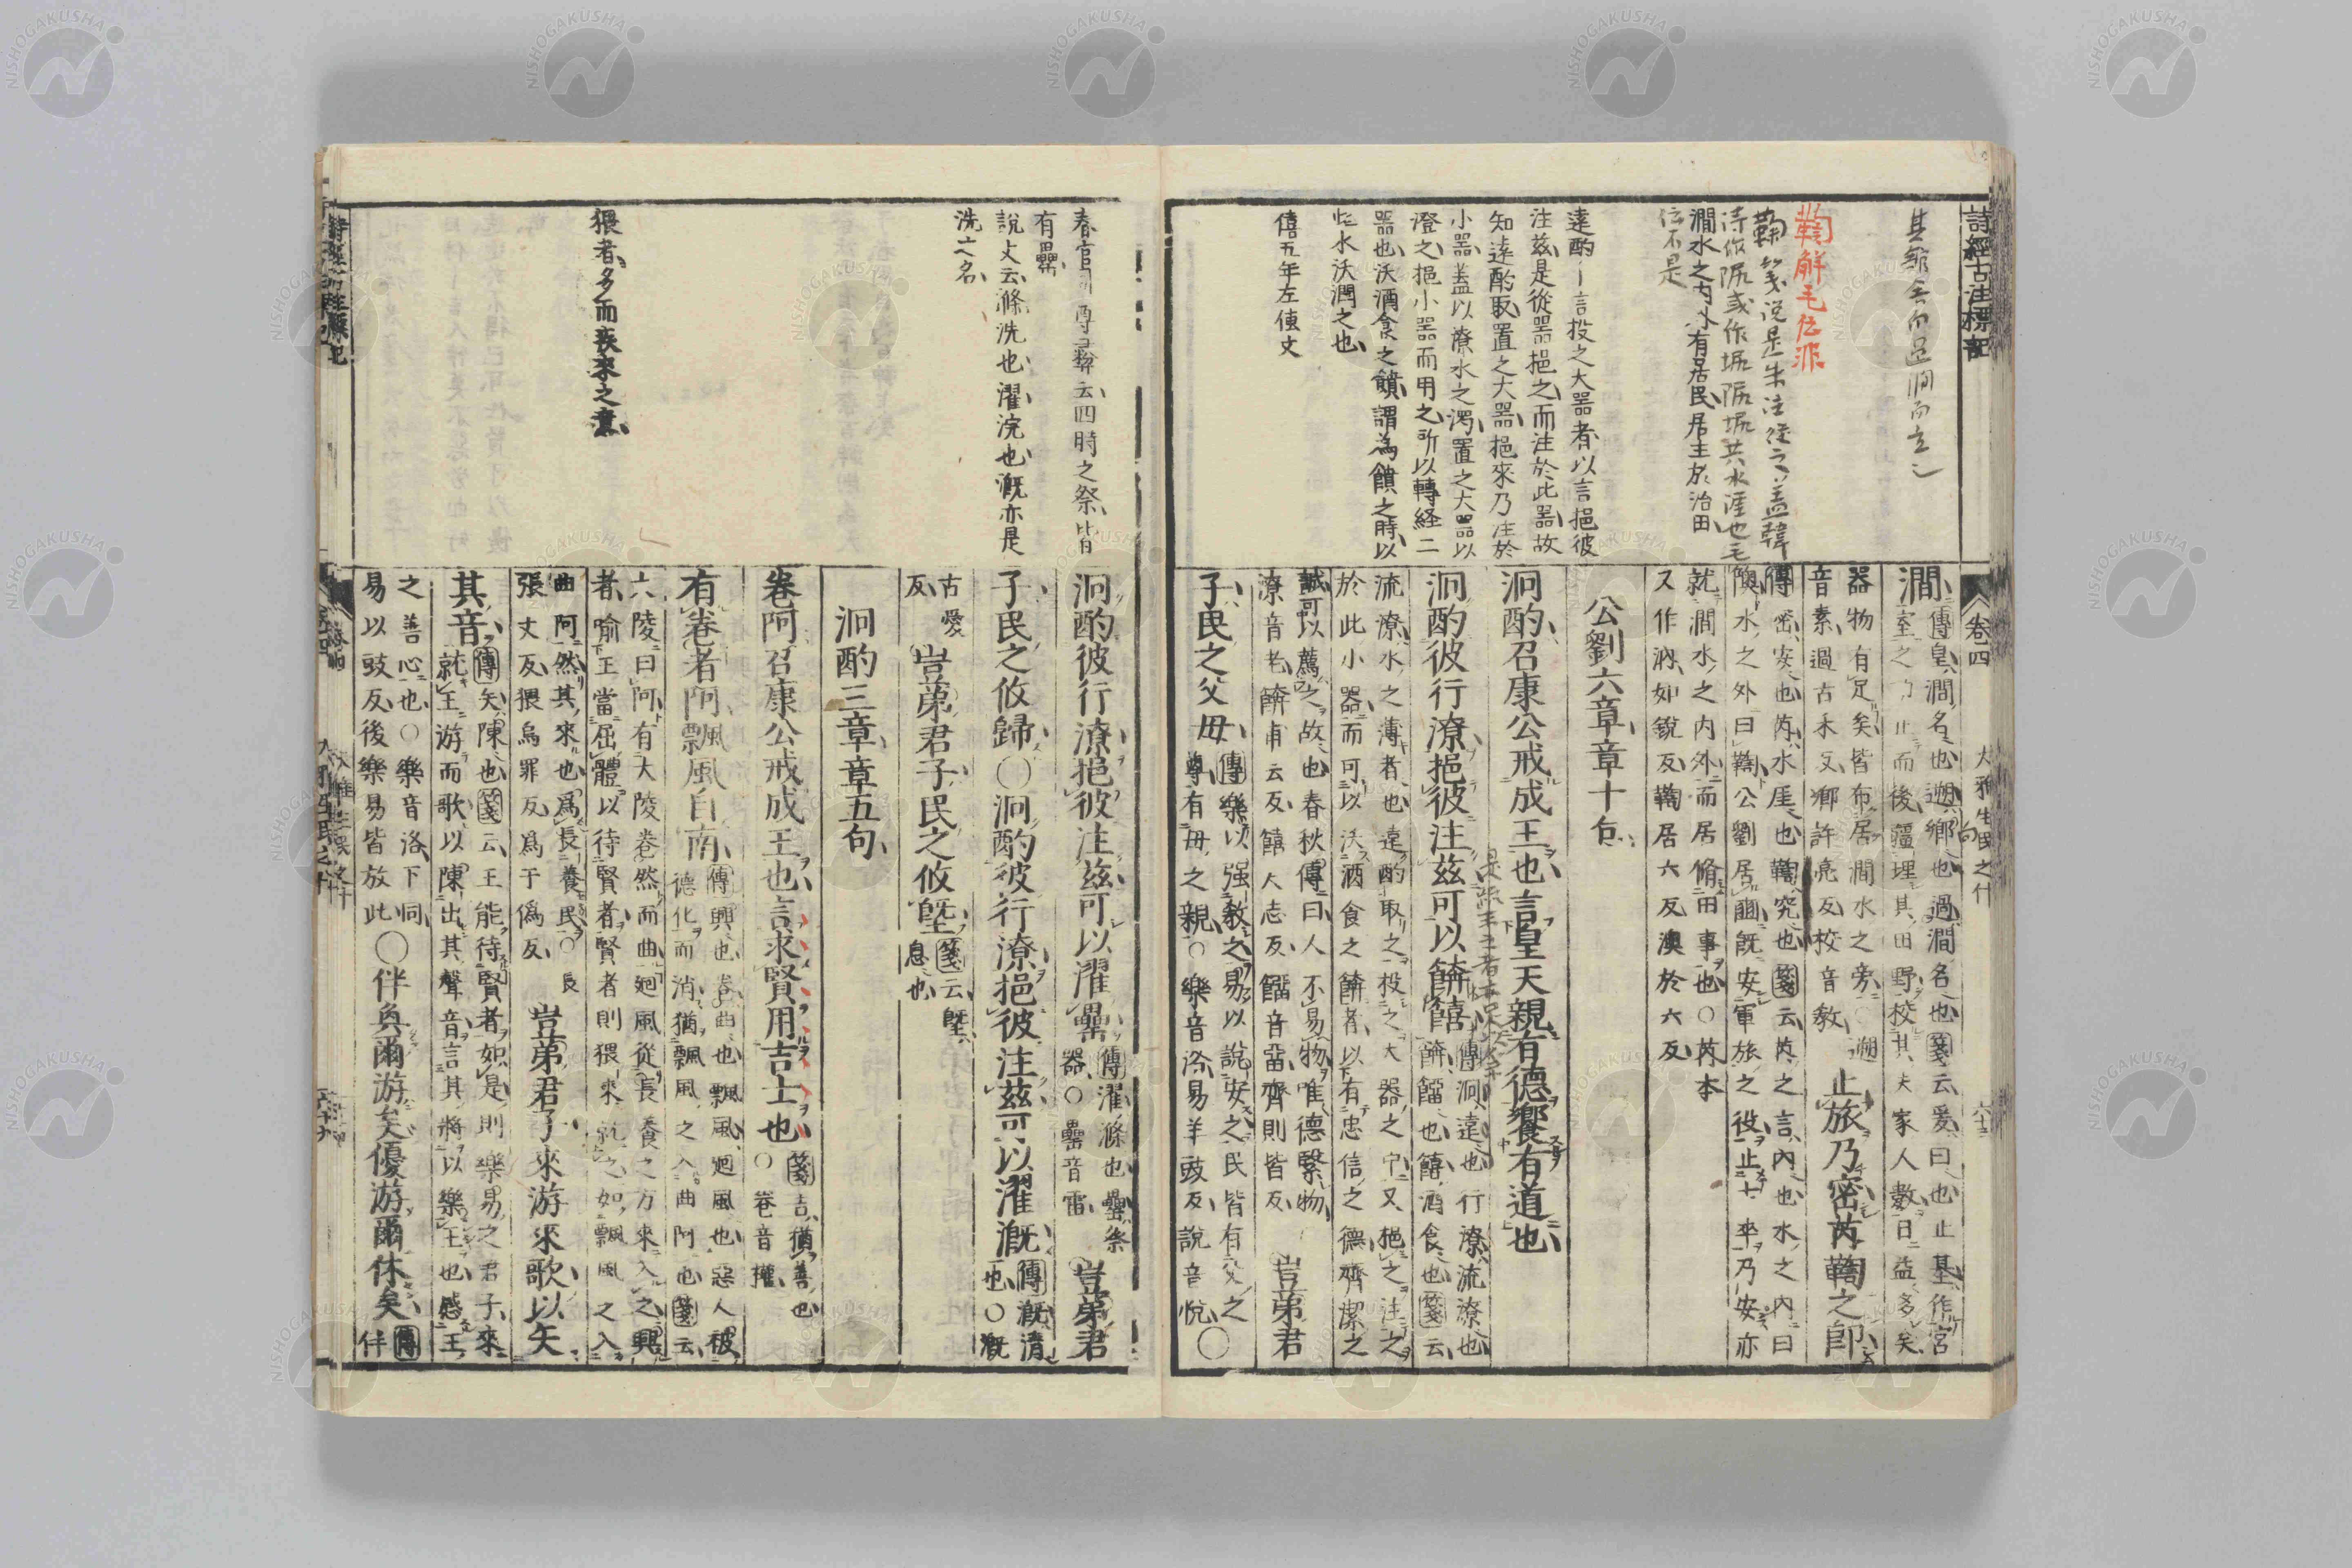 詩經古注標記
卷四
大雅生民之什
達酌｜言投之大器者以言挹彼
注茲是從器挹之而注於此器故
知遠酌取置之大器挹來乃注於
小器蓋以潦水之濁置之大器以
澄之挹小器而用之所以轉経二
器也沃酒食之饙謂為饙之時以
水沃潤之也
僖五年左傳文
澗
傳皇澗名也遡鄉也過澗名也箋云爰曰也止基作宮
室之功止而後疆理其田野校其夫家人數日益多矣
器物有足矣皆布居澗水之旁○遡
音素過古禾反鄉許亮反校音教
止旅乃密芮鞫之卽
傳密安也芮水厓也鞫究也箋云芮之言內也水之內曰
隩水之外曰鞫公劉居豳旣安軍旅之役止士卒乃安亦
就澗水之內外而居脩田事也○芮本
又作汭如銳反鞫居六反澳於六反
公劉六章章十句
泂酌召康公戒成王也言皇天親有德饗有道也
泂酌彼行潦挹彼注茲可以餴饎
傳泂遠也行潦流潦也
餴餾也饎酒食也箋云
流潦水之薄者也遠酌取之投之大器之中又挹之注之
於此小器而可以沃酒食之餴者以有忠信之德齊潔之
誠可以薦之故也春秋傳曰人不易物唯德繫物
潦音老餴甫云反饎尺志反餾音霤齊則皆反
豈弟君
子民之父母
傳樂以强敎之易以說安之民皆有父之
尊有母之親○樂音洛易羊豉反說音悅○
春官司尊彝云四時之祭皆
有罍
說文云滌洗也濯浣也漑亦是
洗之名
猥者多而疾來之意
泂酌彼行潦挹彼注茲可以濯罍
傳濯滌也罍祭
器○罍音雷
豈弟君
子民之攸歸○泂酌彼行潦挹彼注茲可以濯漑
傳漑清
也○漑
古愛
反
豈弟君子民之攸墍
箋云墍
息也
泂酌三章章五句
卷阿召康公戒成王也言求賢用吉士也
箋吉猶善也
○卷音權
有卷者阿飄風自南
傳興也卷曲也飄風迴風也惡人被
德化而消猶飄風之入曲阿也箋云
大陵曰阿有大陵卷然而曲迴風從長養之方來入之興
者喻王當屈體以待賢者賢者則猥來就之如飄風之入
曲阿然其來也爲長養民○長
張丈反猥烏罪反爲于僞反
豈弟君子來游來歌以矢
其音
傳矢陳也箋云王能待賢者如是則樂易之君子來
就王游而歌以陳出其聲音言其將以樂王也感王
之善心也○樂音洛下同
易以豉反後樂易皆放此
○伴奐爾游矣優游爾休矣
傳
伴